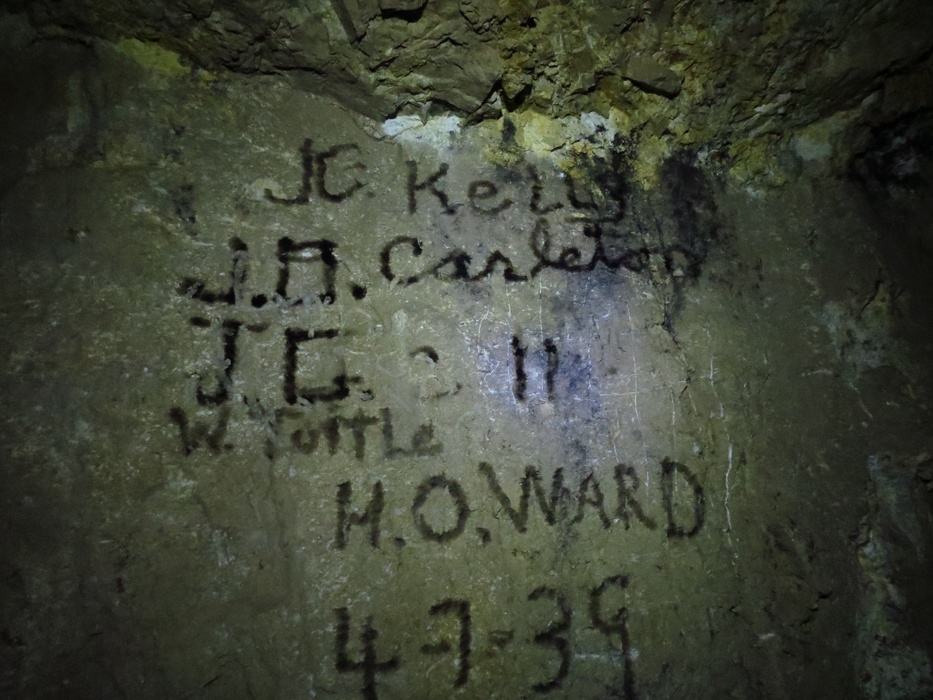 J.C. Kelly
J.D. Carleton
J.E.
W. Tuttle
H.O. WARD
4-7-39